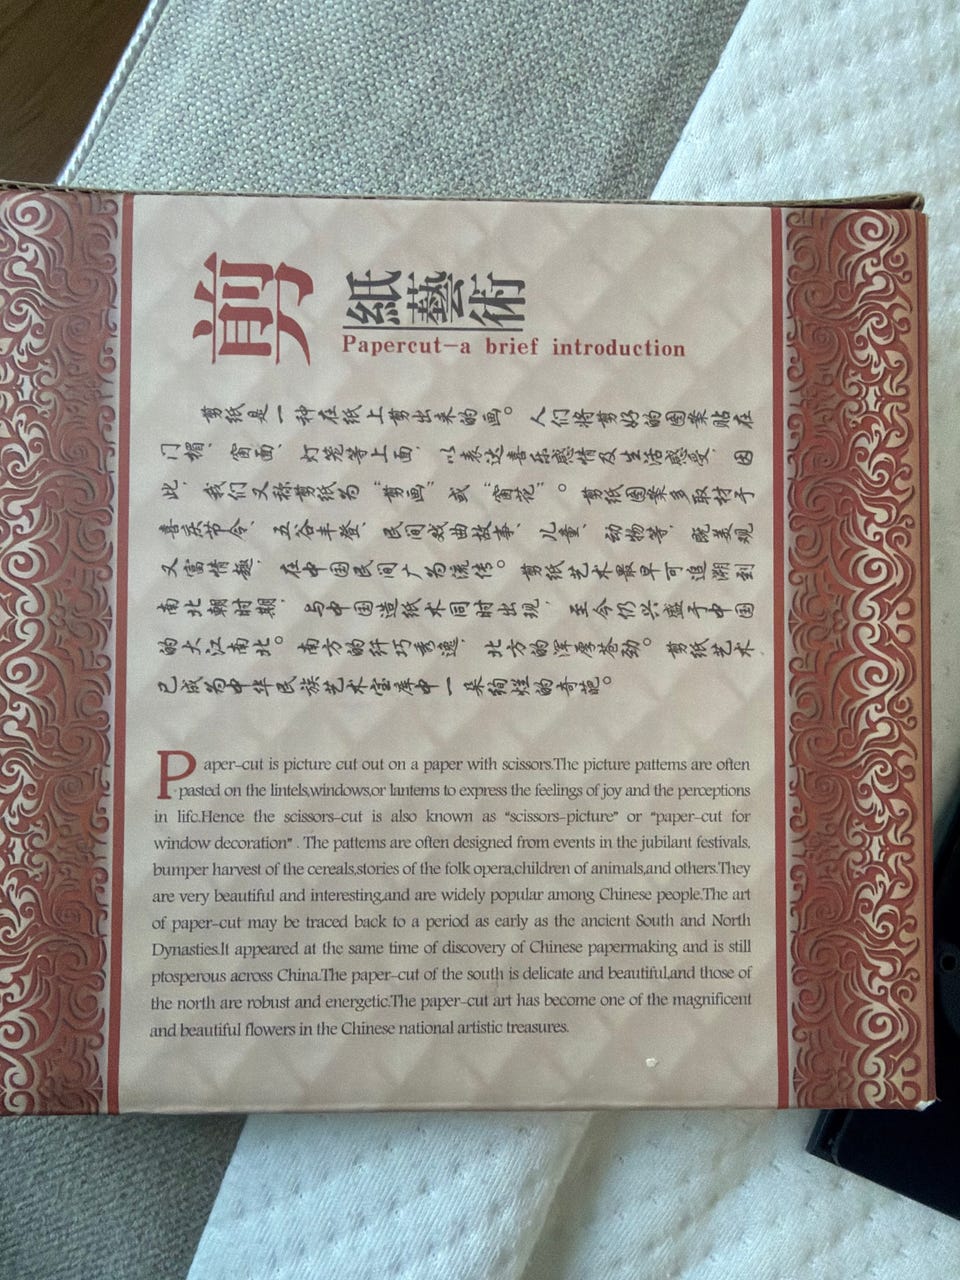 剪
紙藝術
Papercut—a brief introduction
剪纸是一种在纸上剪出来的画。人们将剪好的图案贴在
门楣、窗面、灯笼等上面，以表达喜乐感情及生活感受，因
此，我们又称剪纸为“剪画”或“窗花”。剪纸图案多取材于
喜庆节令、五谷丰登、民间戏曲故事、儿童、动物等，既美观
又富情趣，在中国民间广为流传。剪纸艺术最早可追溯到
南北朝时期，与中国造纸术同时出现，至今仍兴盛于中国
的大江南北。南方的纤巧秀逸，北方的浑厚苍劲。剪纸艺术
已成为中华民族艺术宝库中一朵绚烂的奇葩。
Paper-cut is picture cut out on a paper with scissors.The picture patterns are often
pasted on the lintels,windows,or lanterns to express the feelings of joy and the perceptions
in life.Hence the scissors-cut is also known as “scissors-picture” or “paper-cut for
window decoration” . The patterns are often designed from events in the jubilant festivals,
bumper harvest of the cereals,stories of the folk opera,children of animals,and others.They
are very beautiful and interesting,and are widely popular among Chinese people.The art
of paper-cut may be traced back to a period as early as the ancient South and North
Dynasties.It appeared at the same time of discovery of Chinese papermaking and is still
ptosperous across China.The paper-cut of the south is delicate and beautiful,and those of
the north are robust and energetic.The paper-cut art has become one of the magnificent
and beautiful flowers in the Chinese national artistic treasures.